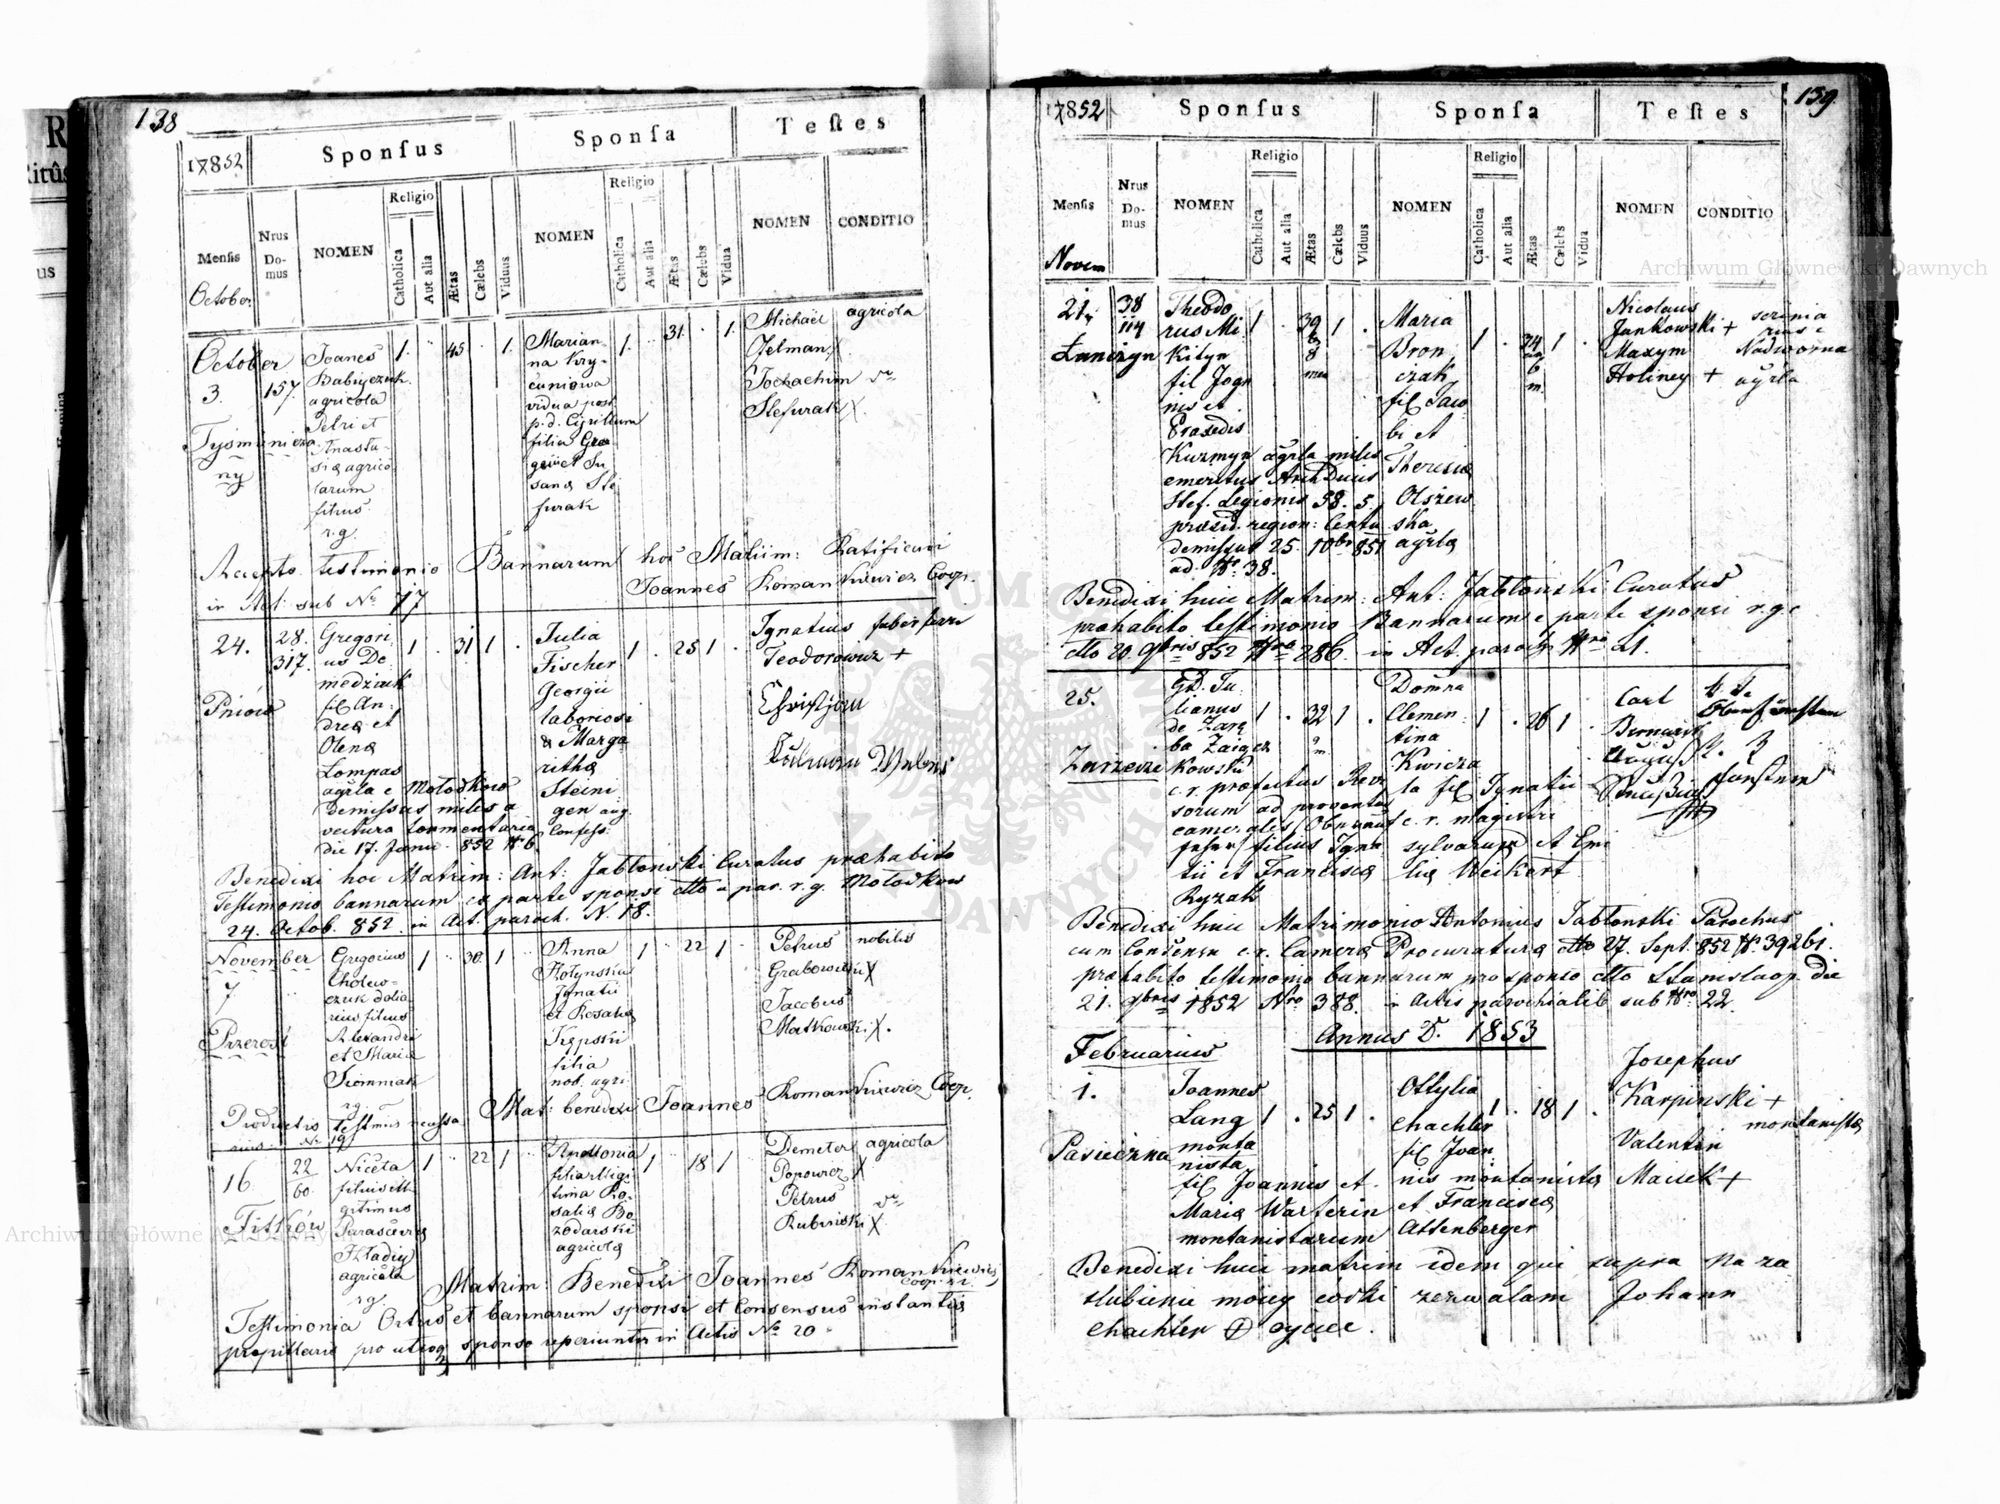 138
17852
Sponſus
Sponſa
Teſtes
Menſis
Nrus Do-mus
NOMEN
Religio
Catholica
Aut alia
Ætas
Cælebs
Viduus
NOMEN
Religio
Catholica
Aut alia
Ætas
Cælebs
Vidua
NOMEN
CONDITIO
October
October
3.
157.
Joanes
Babijczuk
agricola
Petri et
Anasta-
siæ agrico
larum
filius
r.g.
1. 45 1.
Marian-
na Kry-
cuniowa
vidua post
p.d. Cyrillum
filia Gre
gorii et Su
sanæ Ste
furak
1. 31. 1.
Michael agricola
Stefurak X
Accepto testimonio Bannarum hoc Matrim: Ratificavi
in Act: sub No 17 Joannes Romankiewicz Coop.
24.
28.
317.
Pniów
Gregori
us De
medziuk
fil An-
dreæ et
Olenæ
Lompas
agrlæ e Mołodków
demissus miles a
vectura tormentaria
die 17. Janu. 852 No 6
1 31 1
Julia
Fischer
Georgii
laboriosi
& Marga
rithæ
Steini
gen aug.
Confess:
1 25 1
Ignatius faber ferri
Teodorowicz +
Benedixi hoc Matrim: Ant: Jabłonski Curatus præhabito
Testimonio bannarum ex parte sponsi dtto a par. r.g. Mołodków
24. Octob. 852. in Act. paroch. N. 18.
November
7
Przerosl
Gregorius
Cholew-
czuk dolia
rius filius
Alexandri
et Maria
r.g.
1 30. 1
Anna
Hołynska
Ignatii
et Rosaliæ
Kępski
filia
nob. agri.
1 22 1
Petrus nobilis
Grabowiecki X
Jacobus
Matkowski X.
Productis testmus necessa Mat: benedixi Joannes Romankiewicz Coop.
riis No 19
16.
22
60
Fitków
Niceta
filius ille
gitimus
Parascevæ
Hładij
agricola
r.g.
1 22 1
Apollonia
filia illigi
tima Ro-
saliæ Bo
zodarski
agricolæ
1 18 1
Demeter agricola
Popowicz X
Petrus
Rubinski X
Matrim: Benedixi Joannes Romankiewicz
Coop.
Testimonia Ortus et bannarum sponsi et Consensus instantiæ
pupillaris pro utroq sponso reperiuntur in Actis No 20
139.
17852
Sponſus
Sponſa
Teſtes
Menſis
Nrus Do-mus
NOMEN
Religio
Catholica
Aut alia
Ætas
Cælebs
Viduus
NOMEN
Religio
Catholica
Aut alia
Ætas
Cælebs
Vidua
NOMEN
CONDITIO
Novem
21.
38
114
Łanczyn
Theodo
rus Mi
kityn
fil Joan
nis et
Praxedis
Kuzmyn agrlæ miles
emeritus ArchDucis
Stef. Legionis 58. 5.
præsid. region: Centu
demissus 25. 10br 851
ad No 38.
1 39 1
8
men
Maria
Bron
czak
fil Jaco
bi et
Theresiæ
Olszew
ska
agrlæ
1 24 1
6
m.
Nicolaus
Jankowski +
Maxym
Holiney + agrla
Nadworna
Benedixi huic Matrim: Ant: Jabłoński Curatus
præhabito testimonio Bannarum e parte sponsi r.g.c
dtto 20. 9bris 852 Nro 286. in Act. paroch Nro 21.
25.
Zarzecze
Gd. Ju
lianus
de Zarę
ba Zaigcz
kowski
c.r. præfectus Revi
sorum ad proventus
camerales
filius Igna
tii et Franciscæ
Ryzak
1 32 1
9
m.
Domna
Clemen
tina
Kwicza
la fil Ignatii
c.r. magistri
sylvarum et Emi
liæ Weikert
1 26 1
Carl
Bernard
August
Benedixi huic Matrimonio Antonius Jabłonski Parochus
cum Consensu c.r. Cameræ Procuraturæ dtto 27. Sept. 852 No 39261.
præhabito testimonio bannarum pro sponso dtto Stanislaop. die
21. 9bris 1852 Nro 388. in Actis parochialib sub Nro 22.
Annus D. 1853
Februarius
1.
Pasieczna
Joannes
Lang
monta
nista
fil Joannis et
Mariæ Warferin
montanistarum
1 25 1
Ottylia
Chachler
fil Joan
nis montanistæ
et Franciscæ
Attenberger
1 18 1
Josephus
Karpinski +
montanistæ
Valentin
Maisek +
Benedixi huic matrim idem qui supra Na za
slubienie moiey córki zezwalam Johann
Chachler + oyciec.
Archiwum Główne Akt Dawnych
Archiwum Główne Akt Dawnych
ARCHIWUM GŁÓWNE AKT DAWNYCH